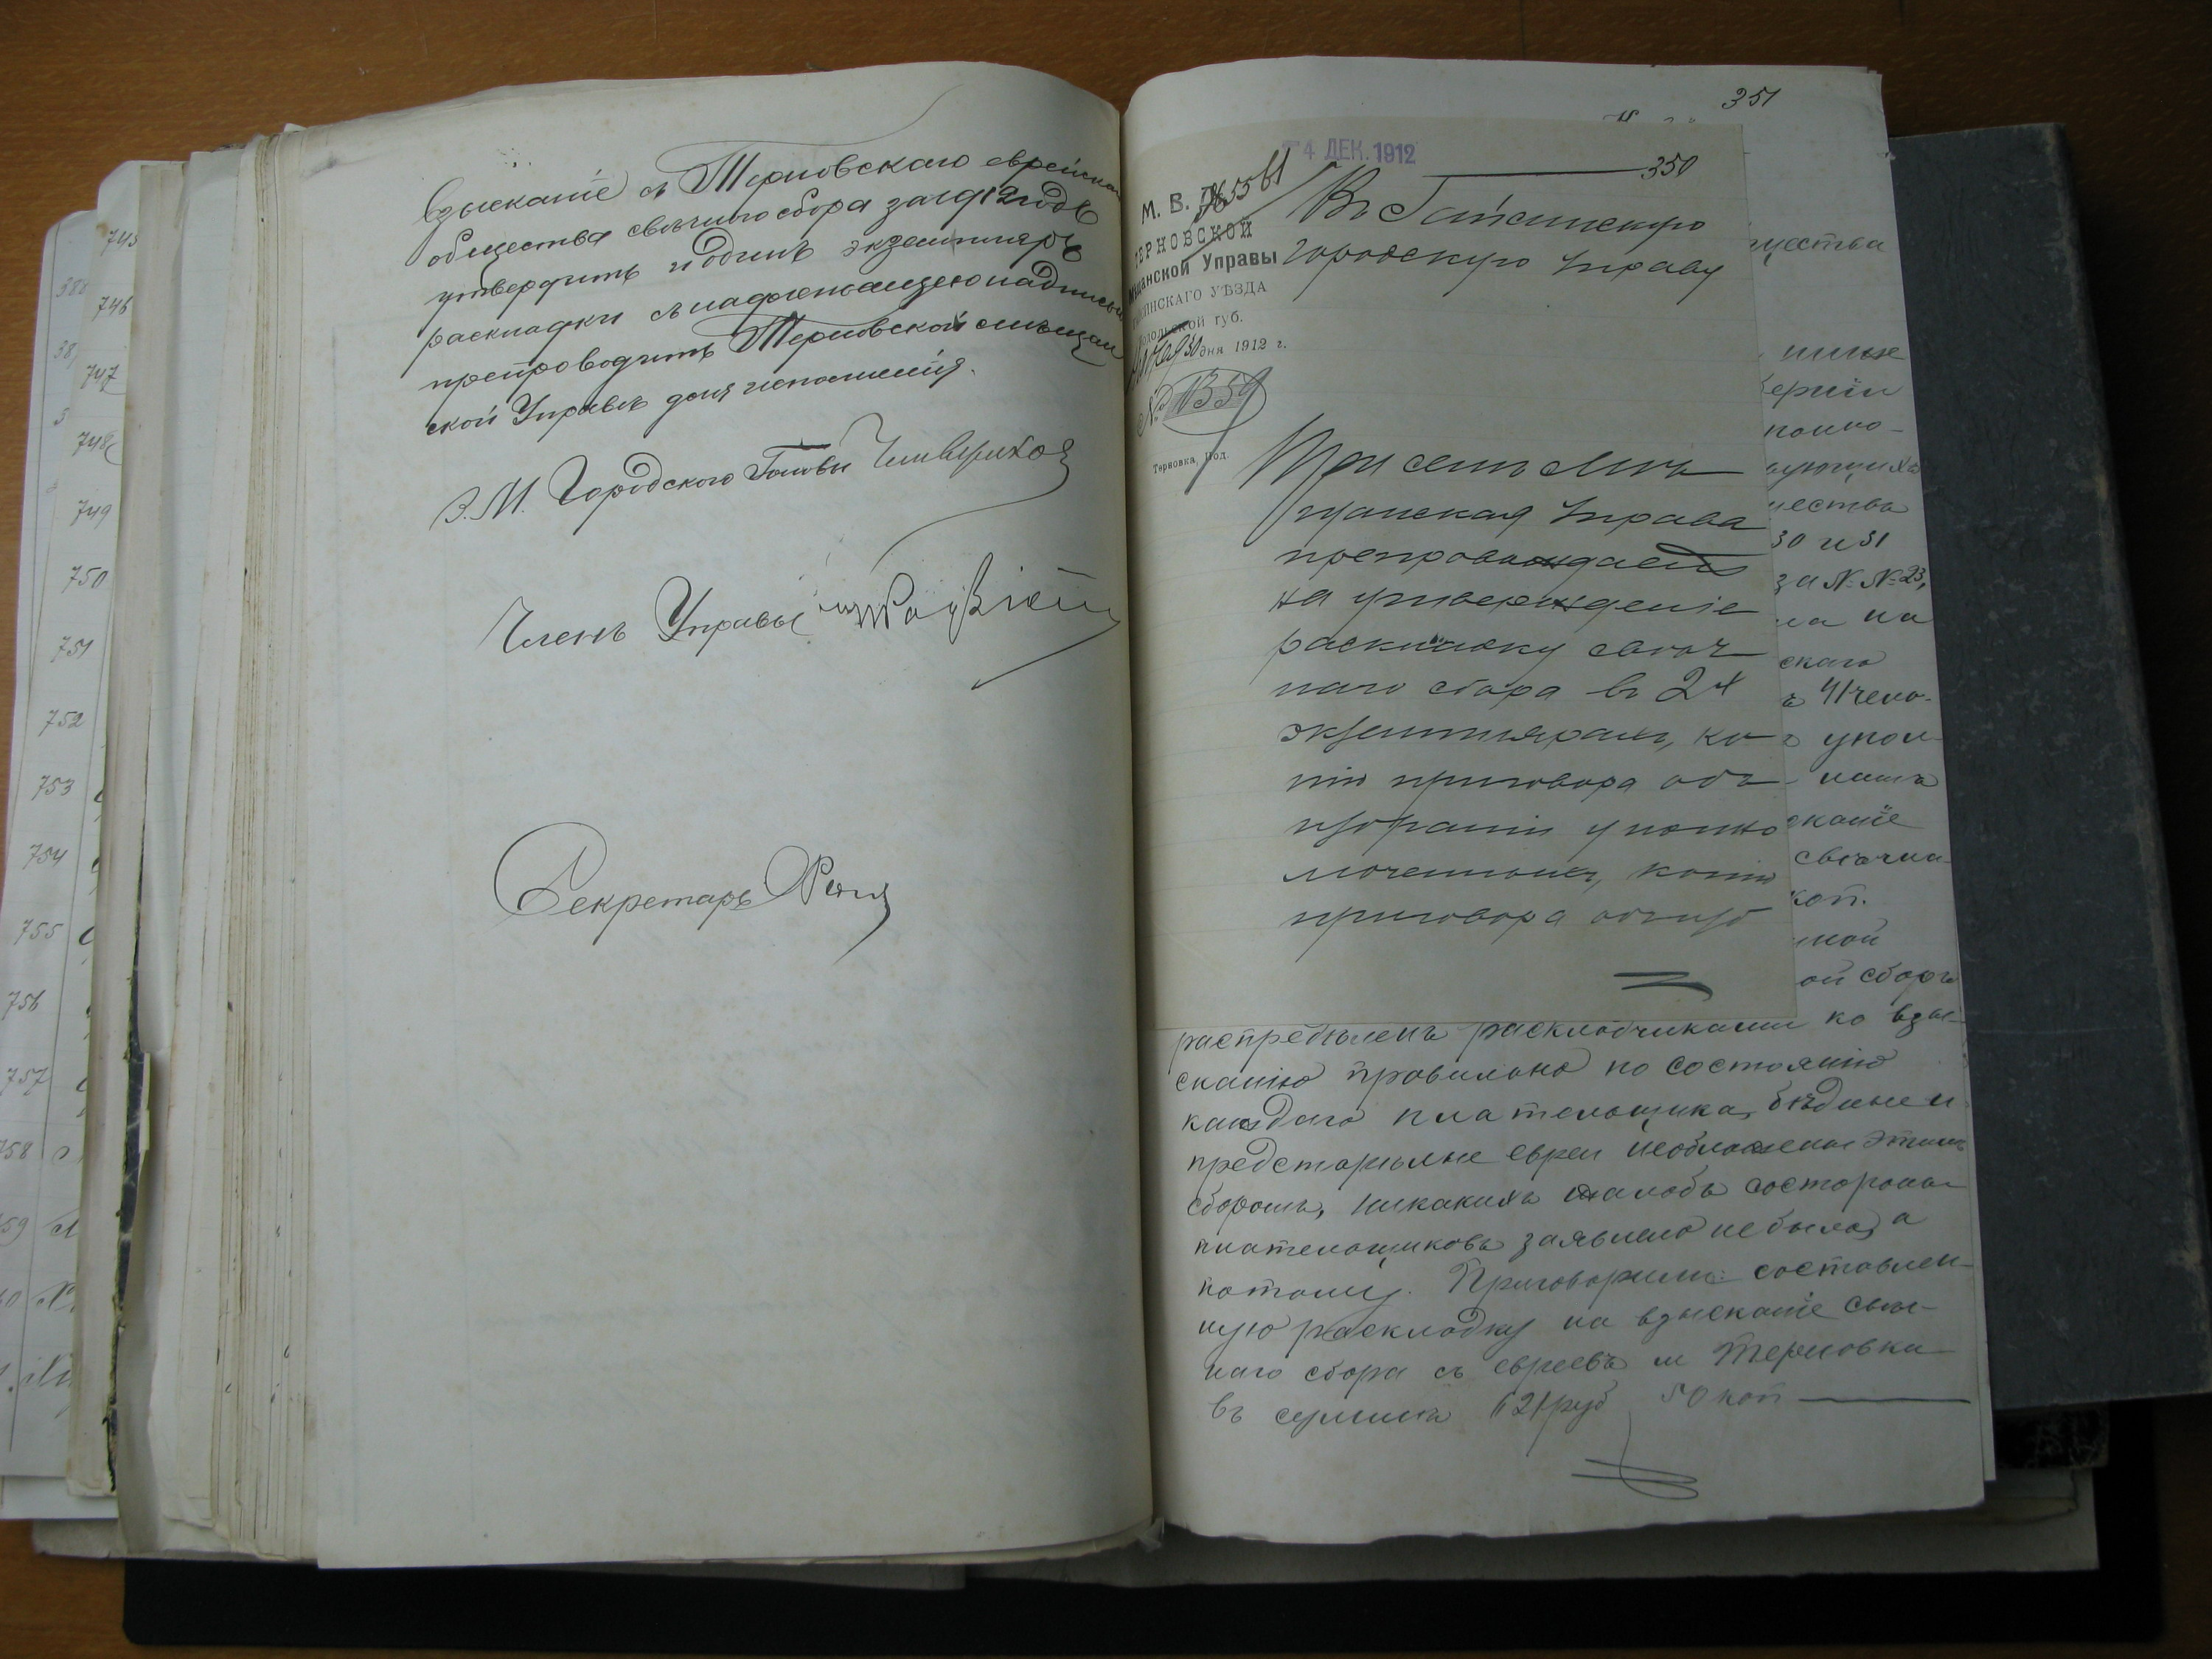 взысканіе съ Терновскаго еврейскаго
общества свѣчного сбора за 1912 годъ
утвердить и одинъ экземпляръ
раскладки съ надлежащею надписью
препроводить Терновской мѣщан
ской Управѣ для исполненія.
З. М. Городского Головы
Членъ Управы
Секретарь
745
746
747
748
749
750
751
752
753
754
755
756
757
758
59
351
4 ДЕК. 1912
350
М. В. Д.
ТЕРНОВСКОЙ
Мѣщанской Управы
УѢЗДА
Подольской губ.
30 дня 1912 г.
№ 1359
Терновка, Под.
Въ Гайсинскую
городскую Управу
При семъ Мѣ
щанская Управа
препровождаетъ
на утвержденіе
раскладку свѣч
наго сбора въ 2х
экземплярахъ, ко
пію приговора объ
избраніи уполно
моченныхъ, копію
приговора объ изб
щества
ниже
берніи
полно-
ующихъ
щества
30 и 31
за №№ 23,
на
скаго
ъ 41 чело-
упол
нашъ
сканіе
свѣчна-
коп.
ной
ой сборъ
распредѣленъ раскладчиками ко взы-
сканію правильно по состоянію
каждаго плательщика, бѣдные и
престарѣлые евреи необложены этимъ
сборомъ, никакихъ жалобъ состороны
плательщиковъ заявлено не было, а
потому. Приговорили: составлен-
ную раскладку на взысканіе свѣч-
наго сбора съ евреевъ м Терновки
въ суммѣ 121 руб 50 коп